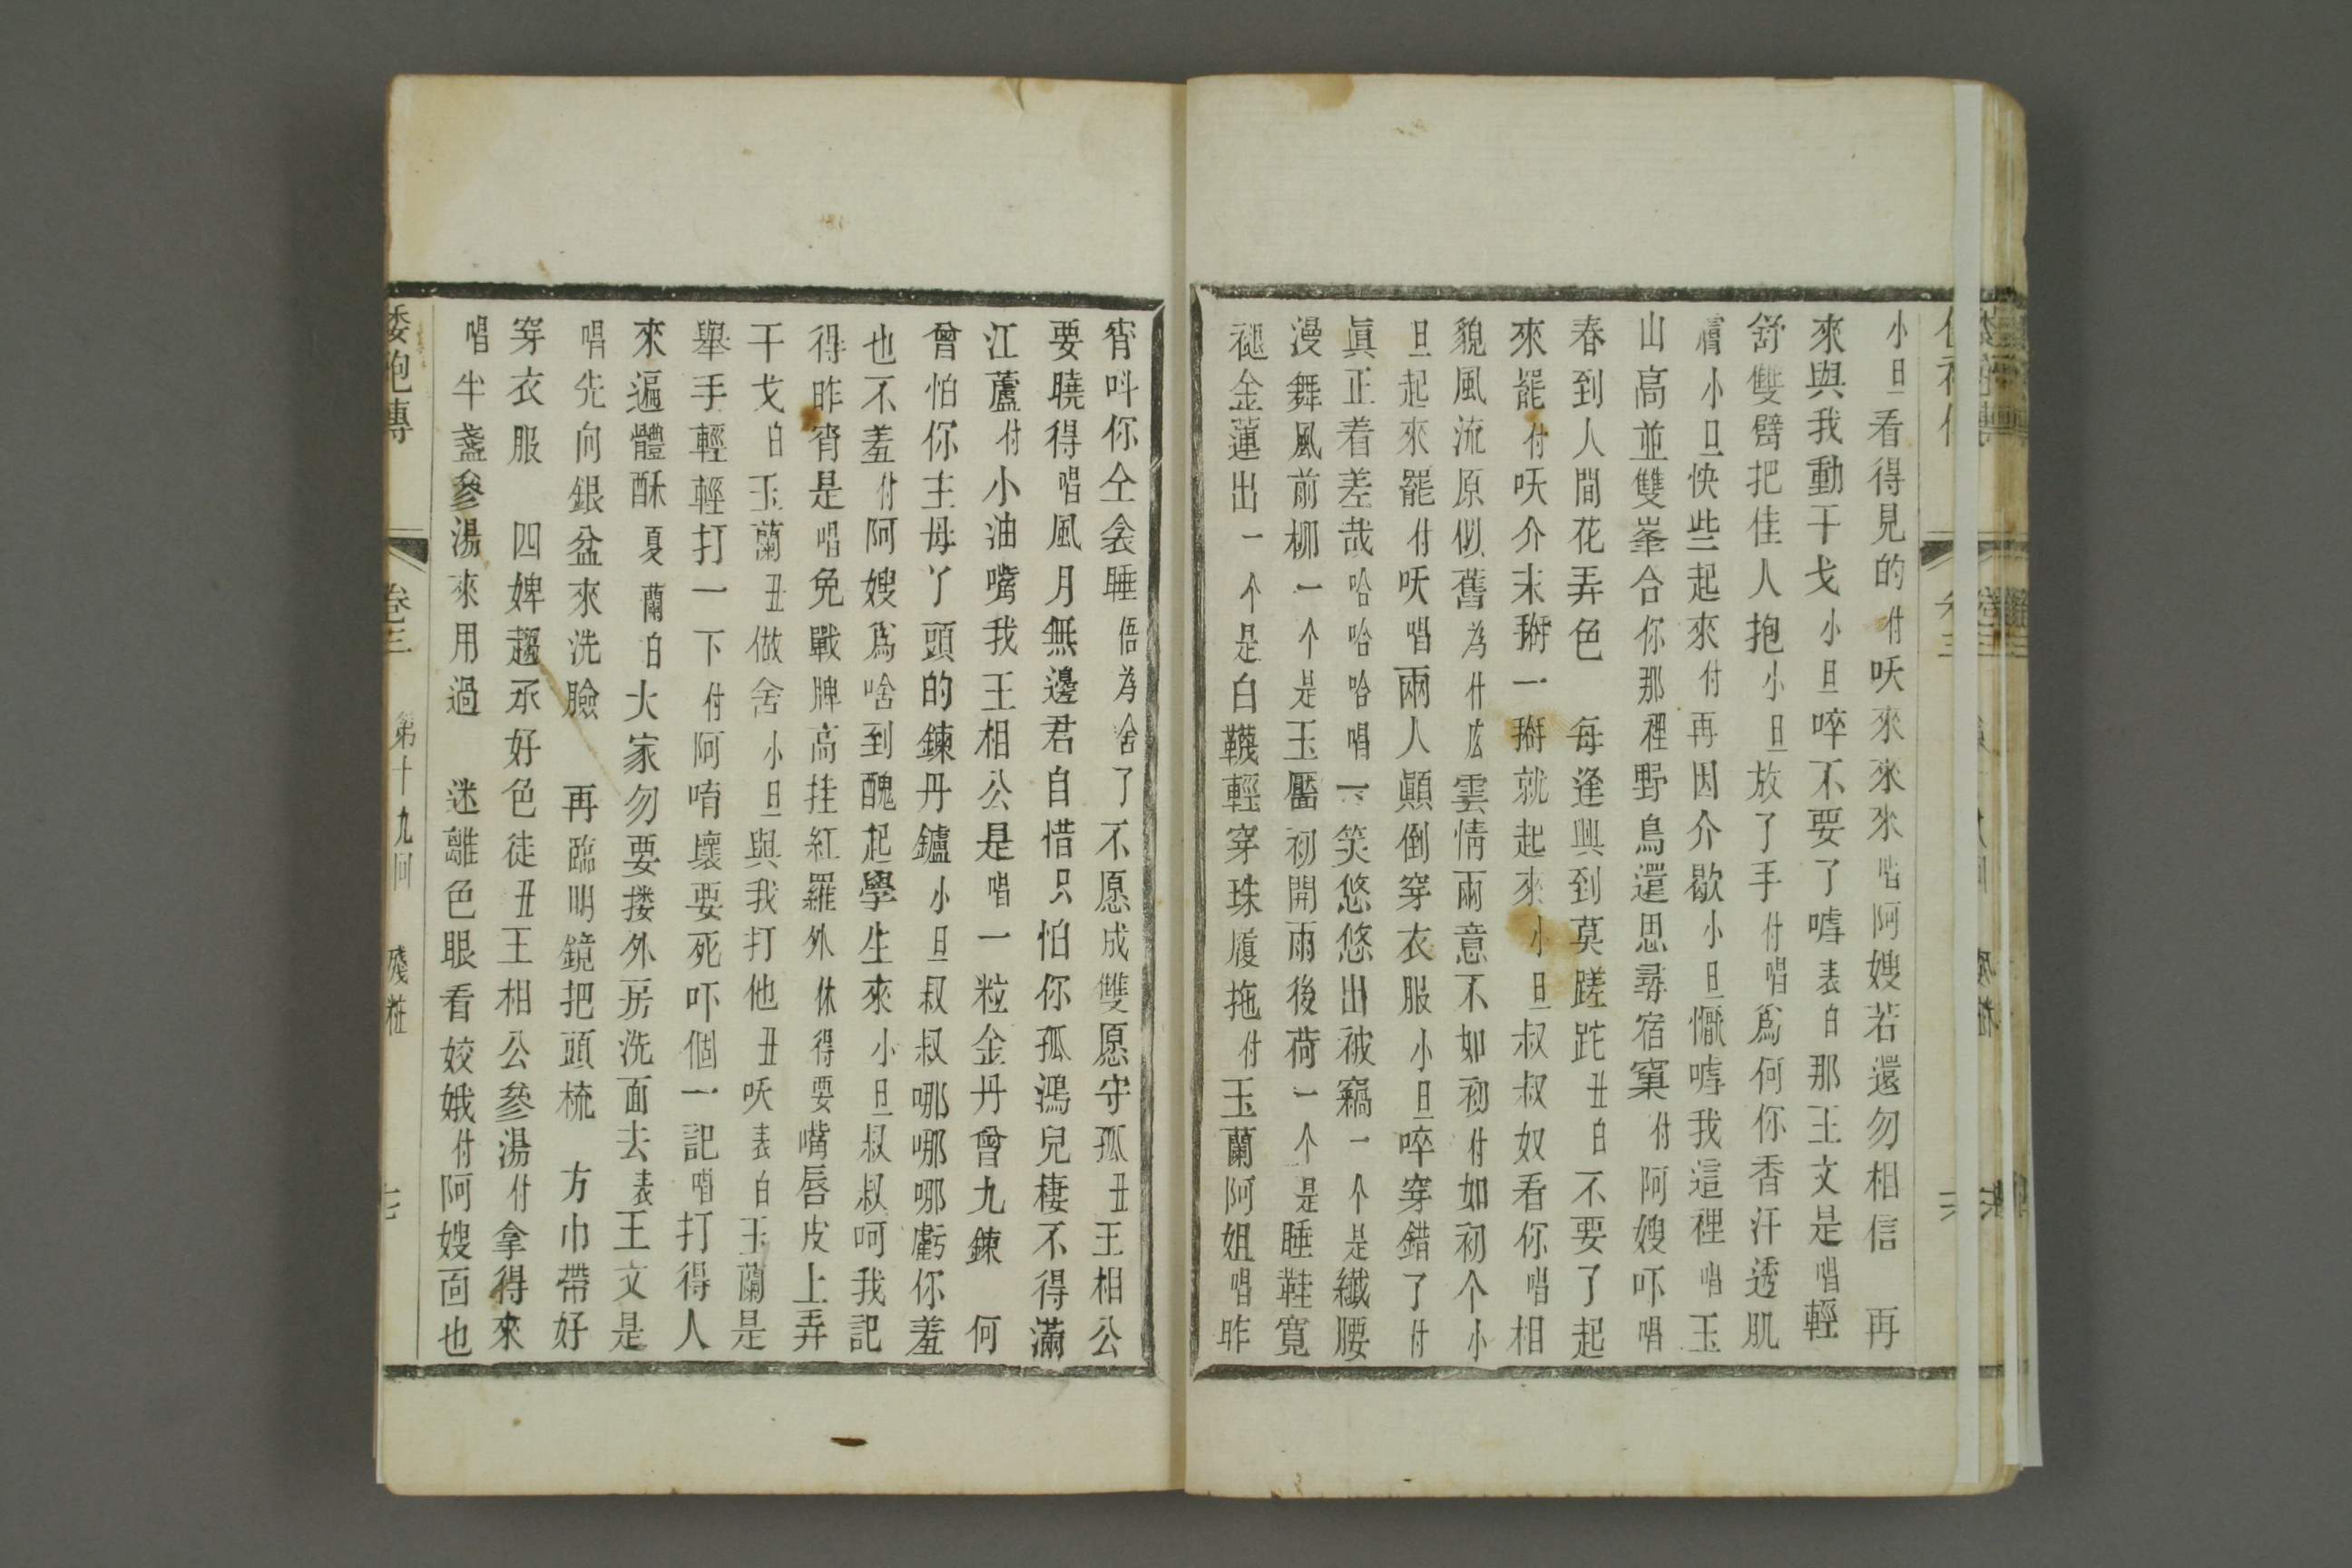 小旦看得見的付呋來來來唱阿嫂若還勿相信　再
來與我動干戈小旦啐不要了嘑表白那王文是唱輕
舒雙臂把佳人抱小旦放了手付唱爲何你香汗透肌
膚小旦快些起來付再因介歇小旦懺嘑我這裡唱玉
山高並雙峯合你那裡野鳥還思尋宿窠付阿嫂吓唱
春到人間花弄色　每逢興到莫蹉跎丑白不要了起
來罷付呋介末掰一掰就起來小旦叔叔奴看你唱相
貌風流原似舊為什広雲情雨意不如初付如初个小
旦起來罷付呋唱兩人顛倒穿衣服小旦啐穿錯了付
眞正着差哉哈哈哈唱一笑悠悠出被窩一个是纖腰
漫舞風前柳一个是玉靨初開雨後荷一个是睡鞋寬
褪金蓮出一个是白韈輕穿珠履拖付玉蘭阿姐唱昨
宵呌你仝衾睡俉為啥了不愿成雙愿守孤丑王相公
要曉得唱風月無邊君自惜只怕你孤鴻兒棲不得滿
江蘆付小油嘴我王相公是唱一粒金丹曾九鍊　何
曾怕你主母丫頭的鍊丹鑪小旦叔叔哪哪哪虧你羞
也不羞付阿嫂爲啥到醜起學生來小旦叔叔呵我記
得昨宵是唱免戰牌高挂紅羅外休得要嘴唇皮上弄
干戈白玉蘭丑做舍小旦與我打他丑呋表白玉蘭是
舉手輕輕打一下付阿唷壞要死吓個一記唱打得人
來遍體酥夏蘭白大家勿要摟外房洗面去表王文是
唱先向銀盆來洗臉　再臨明鏡把頭梳　方巾帶好
穿衣服　四婢趨承好色徒丑王相公參湯付拿得來
唱半盞參湯來用過　迷離色眼看姣娥付阿嫂面也
倭袍傳　卷三　第十九回　殘粧　七